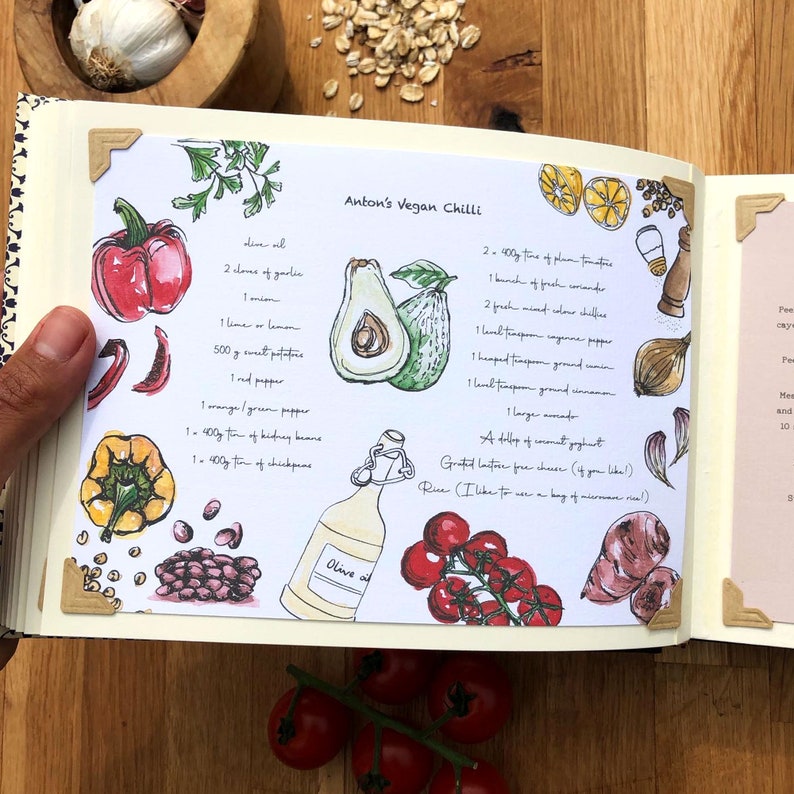 Anton's Vegan Chilli
olive oil
2 cloves of garlic
1 onion
1 lime or lemon
500 g sweet potatoes
1 red pepper
1 orange/green pepper
1 x 400g tin of kidney beans
1 x 400g tin of chickpeas
2 x 400g tins of plum tomatoes
1 bunch of fresh coriander
2 fresh mixed-colour chillies
1 level teaspoon cayenne pepper
1 heaped teaspoon ground cumin
1 level teaspoon ground cinnamon
1 large avocado
A dollop of coconut yoghurt
Grated lactose free cheese (if you like!)
Rice (I like to use a bag of microwave rice!)
Olive oil
and
10